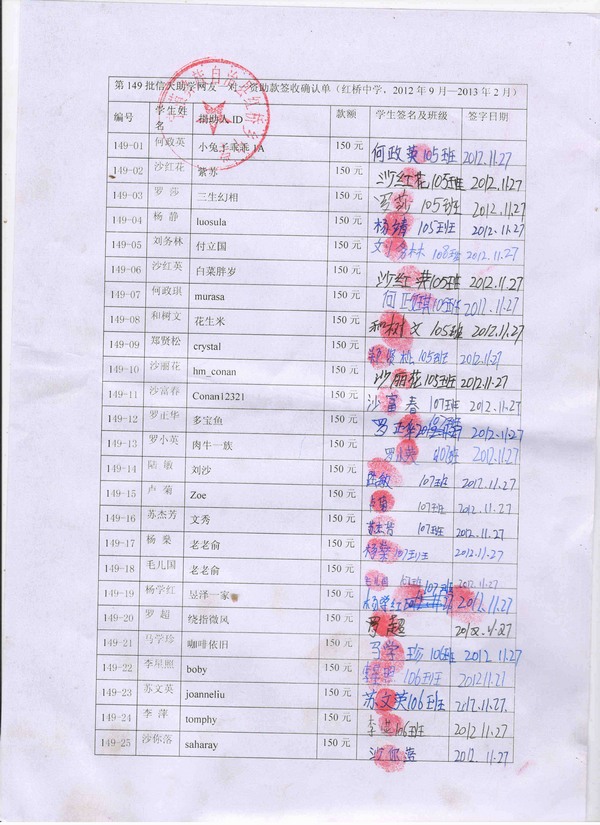 第149批信天助学网友一对一资助款签收确认单（红桥中学，2012年9月—2013年2月）
编号 学生姓名 捐助人ID 款额 学生签名及班级 签字日期
149-01 何政英 小兔子乖乖1A 150元 何政英105班 2012.11.27
149-02 沙红花 紫苏 150元 沙红花105班 2012.11.27
149-03 罗莎 三生幻相 150元 罗莎 105班 2012.11.27
149-04 杨静 luosula 150元 杨静 105班 2012.11.27
149-05 刘务林 付立国 150元 刘务林 108班 2012.11.27
149-06 沙红英 白菜胖岁 150元 沙红英105班 2012.11.27
149-07 何政琪 murasa 150元 何政琪105班 2012.11.27
149-08 和树文 花生米 150元 和树文 105班 2012.11.27
149-09 郑贤松 crystal 150元 郑贤松 105班 2012.11.27
149-10 沙丽花 hm_conan 150元 沙丽花105班 2012.11.27
149-11 沙富春 Conan12321 150元 沙富春 107班 2012.11.27
149-12 罗正华 多宝鱼 150元 罗正华 2012.11.27
149-13 罗小英 肉牛一族 150元 罗小英 107班 2012.11.27
149-14 陆敏 刘沙 150元 陆敏 107班 2012.11.27
149-15 卢菊 Zoe 150元 卢菊 107班 2012.11.27
149-16 苏杰芳 文秀 150元 苏杰芳 107班 2012.11.27
149-17 杨燊 老老俞 150元 杨燊 107班 2012.11.27
149-18 毛儿国 老老俞 150元 毛儿国 107班 2012.11.27
149-19 杨学红 昱泽一家 150元 杨学红 107班 2012.11.27
149-20 罗超 绕指微风 150元 罗超 2012.11.27
149-21 马学珍 咖啡依旧 150元 马学珍 106班 2012.11.27
149-22 李星照 boby 150元 李星照 106班 2012.11.21
149-23 苏文英 joanneliu 150元 苏文英106班 2012.11.27.
149-24 李萍 tomphy 150元 李萍106班 2012.11.27
149-25 沙你落 saharay 150元 沙你落 2012.11.27